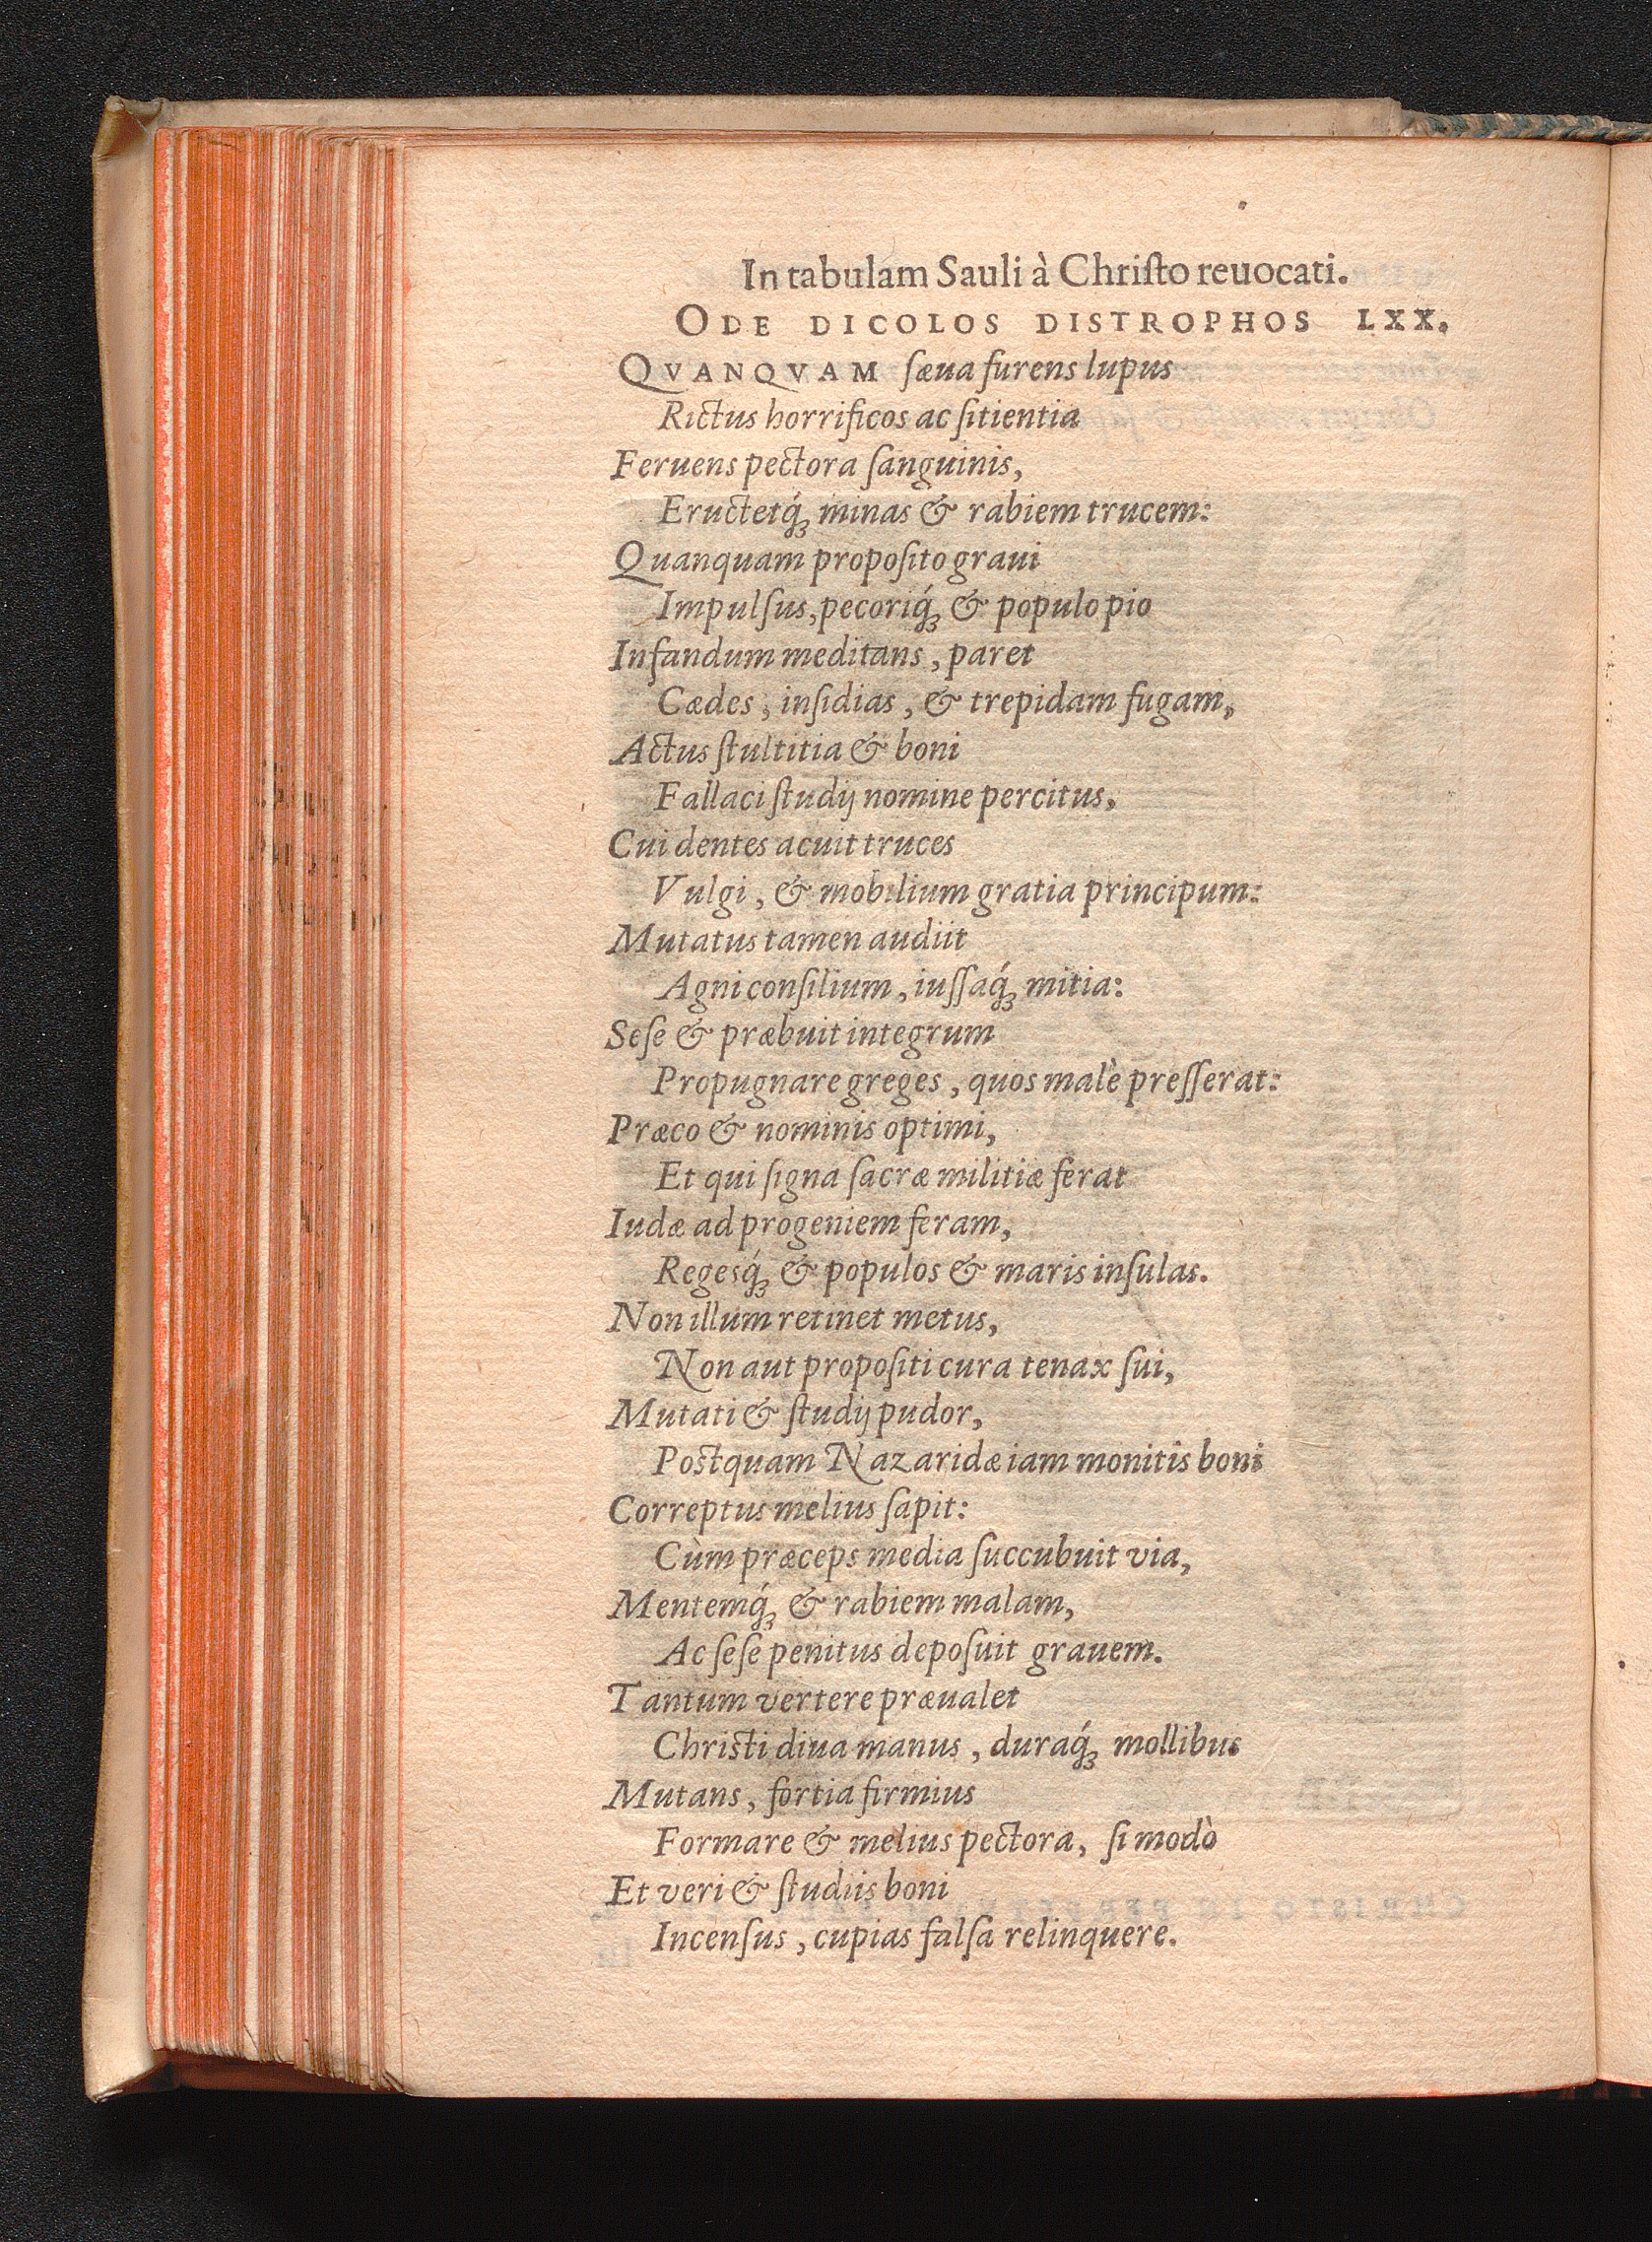 In tabulam Sauli à Chriſto reuocati.
ODE DICOLOS DISTROPHOS LXX.
QVANQVAM ſæua furens lupus
Rictus horrificos ac ſitientia
Feruens pectora ſanguinis,
Eructetq́ꝫ minas & rabiem trucem:
Quanquam propoſito graui
Impulſus, pecoriq́ꝫ & populo pio
Infandum meditans, paret
Cædes, inſidias, & trepidam fugam,
Actus ſtultitia & boni
Fallaci ſtudij nomine percitus,
Cui dentes acuit truces
Vulgi, & mobilium gratia principum:
Mutatus tamen audiit
Agni conſilium, iuſſaq́ꝫ mitia:
Seſe & præbuit integrum
Propugnare greges, quos malè preſſerat:
Præco & nominis optimi,
Et qui ſigna ſacræ militiæ ferat
Iudæ ad progeniem feram,
Regesq́ꝫ & populos & maris inſulas.
Non illum retinet metus,
Non aut propoſiti cura tenax ſui,
Mutati & ſtudij pudor,
Poſtquam Nazaridæ iam monitis boni
Correptus melius ſapit:
Cùm præceps media ſuccubuit via,
Mentemq́ꝫ & rabiem malam,
Ac ſeſe penitus depoſuit grauem.
Tantum vertere præualet
Chriſti diua manus, duraq́ꝫ mollibus
Mutans, fortia firmius
Formare & melius pectora, ſi modò
Et veri & ſtudiis boni
Incenſus, cupias falſa relinquere.